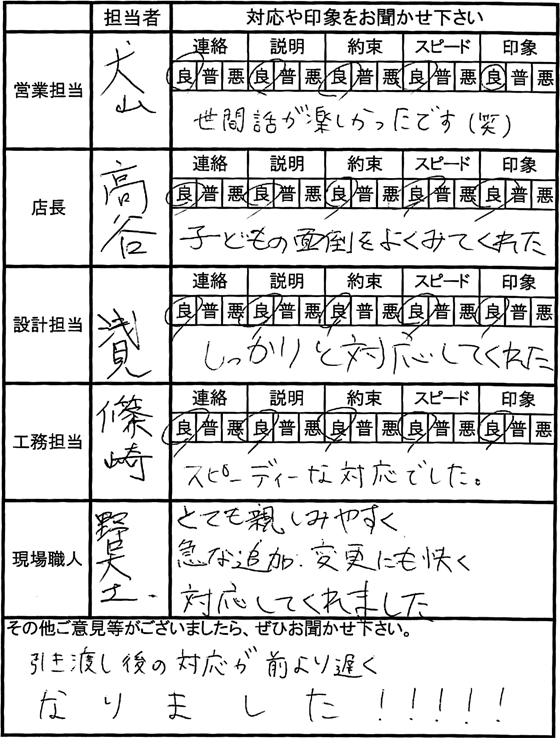 担当者 対応や印象をお聞かせ下さい
営業担当 犬山 連絡 説明 約束 スピード 印象
良 普 悪 良 普 悪 良 普 悪 良 普 悪 良 普 悪
世間話が楽しかったです(笑)
店長 高谷 連絡 説明 約束 スピード 印象
良 普 悪 良 普 悪 良 普 悪 良 普 悪 良 普 悪
子どもの面倒をよくみてくれた
設計担当 浅見 連絡 説明 約束 スピード 印象
良 普 悪 良 普 悪 良 普 悪 良 普 悪 良 普 悪
しっかりと対応してくれた
工務担当 篠崎 連絡 説明 約束 スピード 印象
良 普 悪 良 普 悪 良 普 悪 良 普 悪 良 普 悪
スピーディーな対応でした。
現場職人
とても親しみやすく
急な追加.変更にも快く
対応してくれました
その他ご意見等がございましたら、ぜひお聞かせ下さい。
引き渡し後の対応が前より遅く
なりました!!!!!